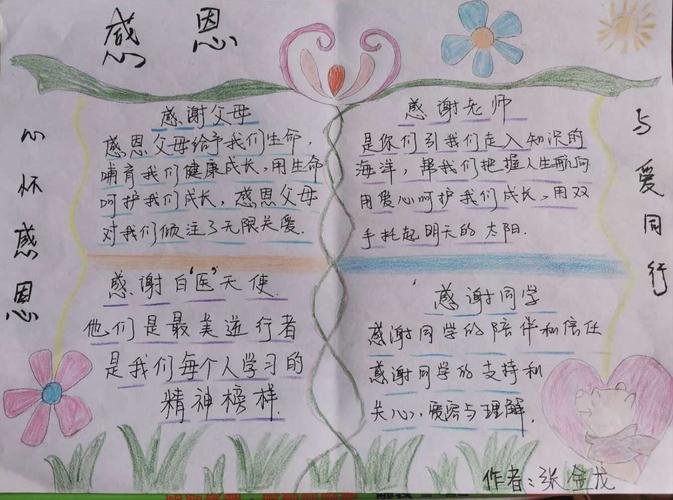 感恩
心怀感恩
感谢父母
感恩父母给予我们生命,
哺育我们健康成长,用生命
呵护我们成长,感恩父母
对我们倾注了无限关爱.
感谢老师
是你们引我们走入知识的
海洋,帮我们把握人生航向
用爱心呵护我们成长,用双
手托起明天的太阳.
与爱同行
感谢白"医"天使
他们是最美逆行者
是我们每个人学习的
精神榜样.
感谢同学
感谢同学的陪伴和信任
感谢同学的支持和
关心,宽容与理解.
作者:张金龙